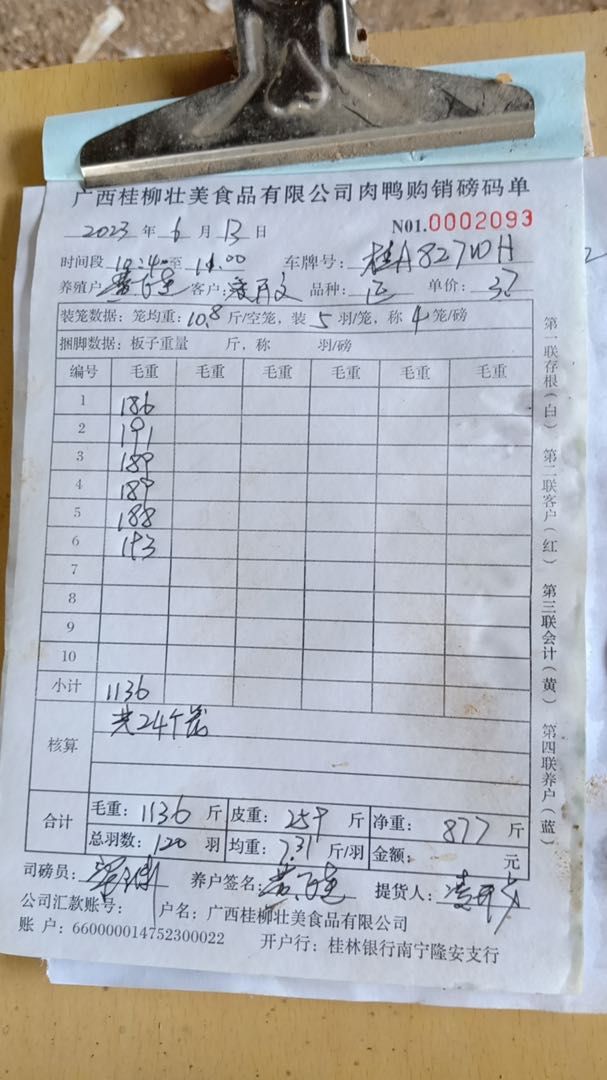 广西桂柳壮美食品有限公司肉鸭购销磅码单
2023 年 6 月 13 日 N01.0002093
时间段 至 14.00 车牌号: 桂A827WH
养殖户 客户: 品种: 单价: 3.7
装笼数据: 笼均重: 10.8 斤/空笼, 装 5 羽/笼, 称 4 笼/磅
捆脚数据: 板子重量 斤, 称 羽/磅
编号 毛重 毛重 毛重 毛重 毛重 毛重
1 186
2 191
3 189
4 189
5 188
6 193
7
8
9
10
小计 1136
核算 共24个笼
合计 毛重: 1136 斤 皮重: 259 斤 净重: 877 斤
总羽数: 120 羽 均重: 7.31 斤/羽 金额: 元
司磅员: 养户签名: 提货人:
公司汇款账号: 户名: 广西桂柳壮美食品有限公司
账 户: 660000014752300022 开户行: 桂林银行南宁隆安支行
第一联存根(白) 第二联客户(红) 第三联会计(黄) 第四联养户(蓝)